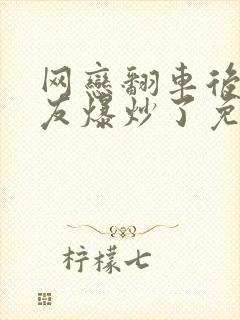 网戀翻車後
友爆炒了免
柠檬七